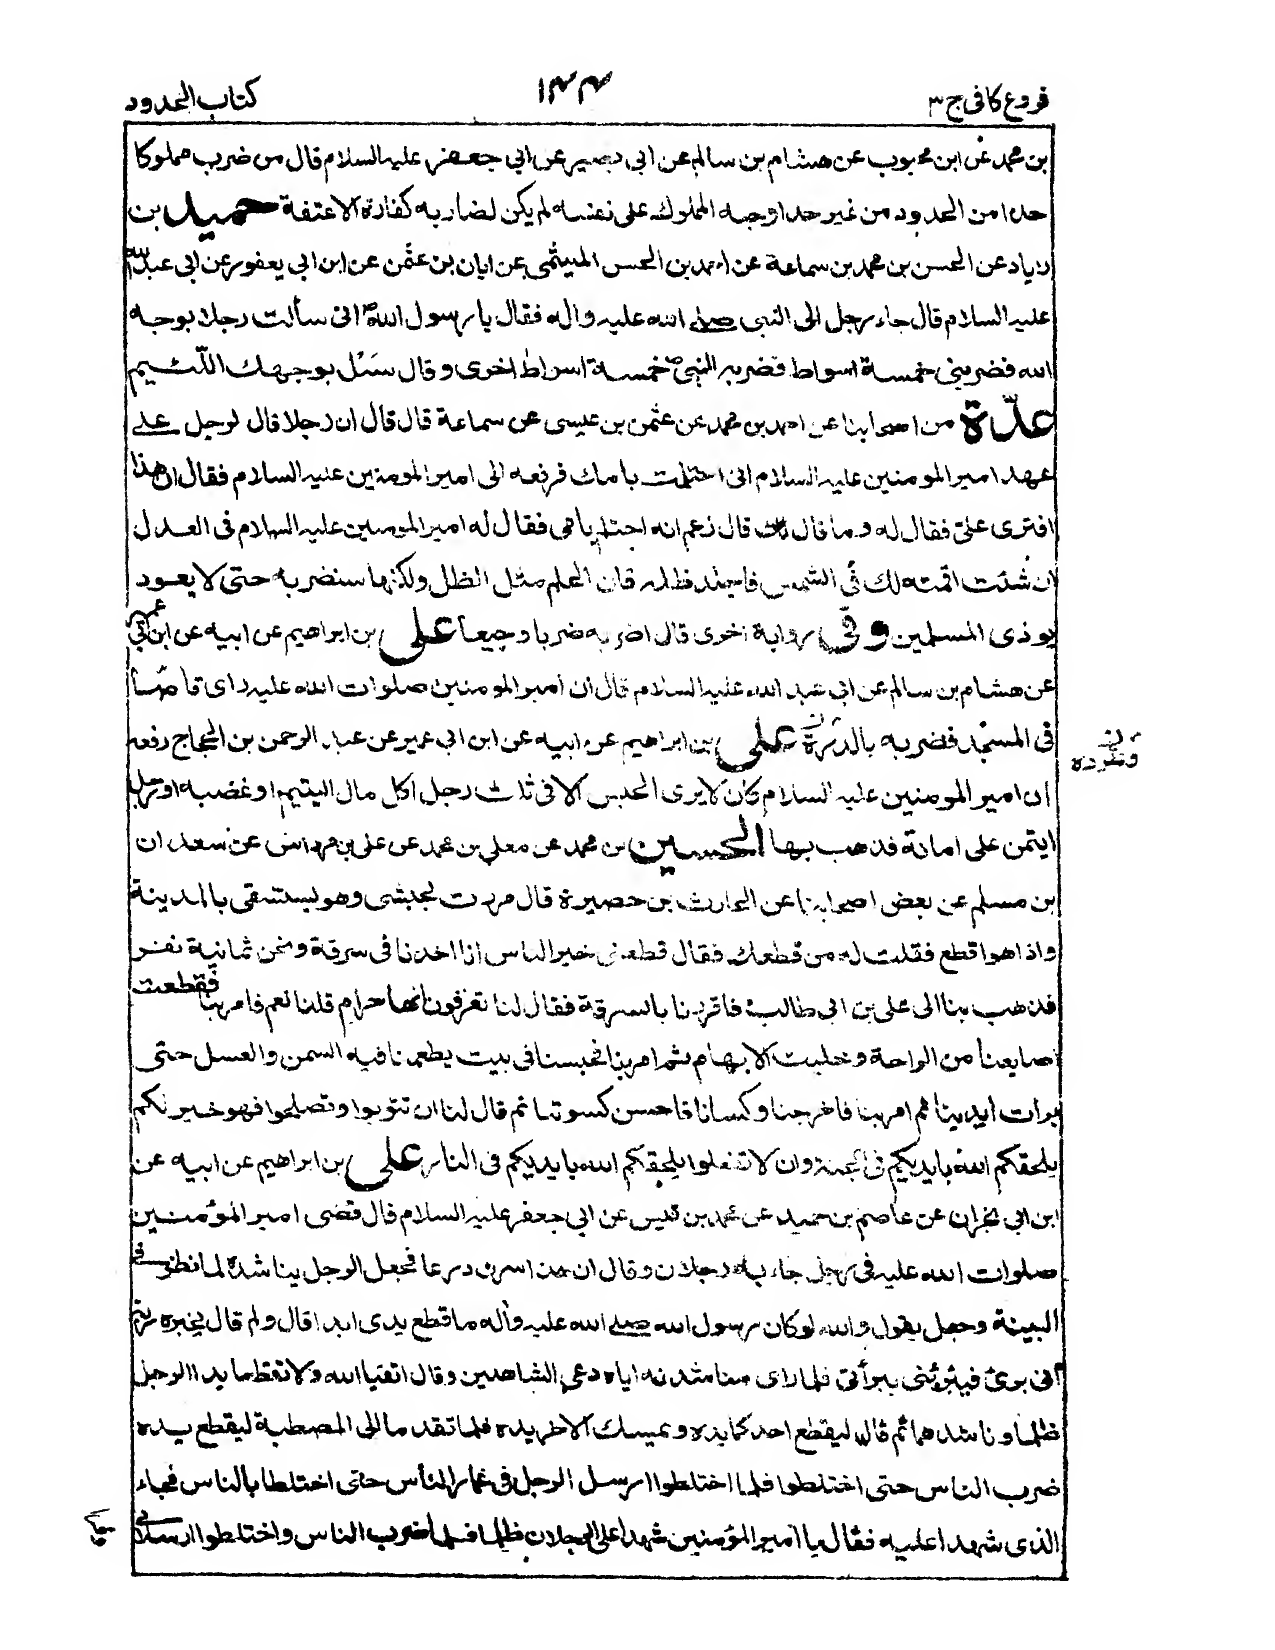 فروع کافی ج۳
۱۳۴
کتاب الحدود
بن محمد عن ابن محبوب عن هشام بن سالم عن ابی بصیر عن ابی جعفر علیه السلام قال من ضرب مملوکا
حدا من الحدود من غیر حد اوجبه المملوک علی نفسه لم یکن لضاربه کفارة الا عتقه حمید بن
زیاد عن الحسن بن محمد بن سماعة عن احمد بن الحسن المیثمی عن ابان بن عثمن عن ابن ابی یعفور عن ابی عبد الله
علیه السلام قال جاء رجل الی النبی صلی الله علیه واله فقال یا رسول الله انی سألت رجلا بوجه
الله فضربنی خمسة اسواط فضربه النبی ص خمسة اسواط اخری و قال سَئل بوجهك اللّئیم
عدّة من اصحابنا عن احمد بن محمد عن عثمن بن عیسی عن سماعة قال قال ان رجلا قال لرجل علی
عهد امیر المومنین علیه السلام انی احتلمت بامك فرفعه الی امیر المومنین علیه السلام فقال ان هذا
افتری علیّ فقال له و ما قال لك قال زعم انه احتلم بامی فقال له امیر المومنین علیه السلام فی العدل
ان شئت اقمته لك فی الشمس فاجلد ظله فان الحلم مثل الظل ولکنا سنضربه حتی لا یعود
یوذی المسلمین وفی روایة اخری قال اضربه ضربا وجیعا علی بن ابراهیم عن ابیه عن ابن ابی عمیر
عن هشام بن سالم عن ابی عبد الله علیه السلام قال ان امیر المومنین صلوات الله علیه رای قاصّاً
فی المسجد فضربه بالدرّة علی بن ابراهیم عن ابیه عن ابن ابی عمیر عن عبد الرحمن بن الحجاج رفعه
وطرده
ان امیر المومنین علیه السلام کان لا یری الحبس الا فی ثلث رجل اکل مال الیتیم او غضبه او رجل
ایتمن علی امانة فذهب بها الحسین بن محمد عن معلی بن محمد عن علی بن مرداس عن سعدان
بن مسلم عن بعض اصحابنا عن الحارث بن حصیرة قال مررت بحبشی وهو یستسقی بالمدینة
واذا هو اقطع فقلت له من قطعك فقال قطعنی خیر الناس انا اخذنا فی سرقة ونحن ثمانیة نفر
فذهب بنا الی علی بن ابی طالب فاقررنا بالسرقة فقال لنا تعرفون انها حرام قلنا نعم فامر بنا فقطعت
اصابعنا من الراحة وخلیت الابهام ثم امر بنا فحبسنا فی بیت یطعمنا فیه السمن والعسل حتی
برات ایدینا ثم امر بنا فاخرجنا وکسانا فاحسن کسوتنا ثم قال لنا ان تتوبوا وتصلحوا فهو خیر لکم
یلحقکم الله بایدیکم فی الجنة وان لا تفعلوا یلحقکم الله بایدیکم فی النار علی بن ابراهیم عن ابیه عن
ابن ابی نجران عن عاصم بن حمید عن محمد بن قیس عن ابی جعفر علیه السلام قال قضی امیر المؤمنین
صلوات الله علیه فی رجل جاء به رجلان وقال ان هذا سرق درعا فجعل الرجل یناشده لما نظر فی
البینة وجعل یقول والله لو کان رسول الله صلی الله علیه وآله ما قطع یدی ابدا قال ولم قال یخبره ربه
انی بریٔ فیبرئنی ببرأتی فلما رای مناشدته ایاه دعی الشاهدین وقال اتقیا الله ولا تقطعا ید الرجل
ظلما وناشدهما ثم قال لیقطع احدکما یده ویمسك الاخر یده فلما تقدما الی المصطبة لیقطع یده
ضرب الناس حتی اختلطوا فلما اختلطوا ارسلا الرجل فی غمار الناس حتی اختلطا بالناس فجاء
الذی شهدا علیه فقال یا امیر المؤمنین شهدا علی الرجلان ظلما فلما ضرب الناس واختلطوا ارسلانی